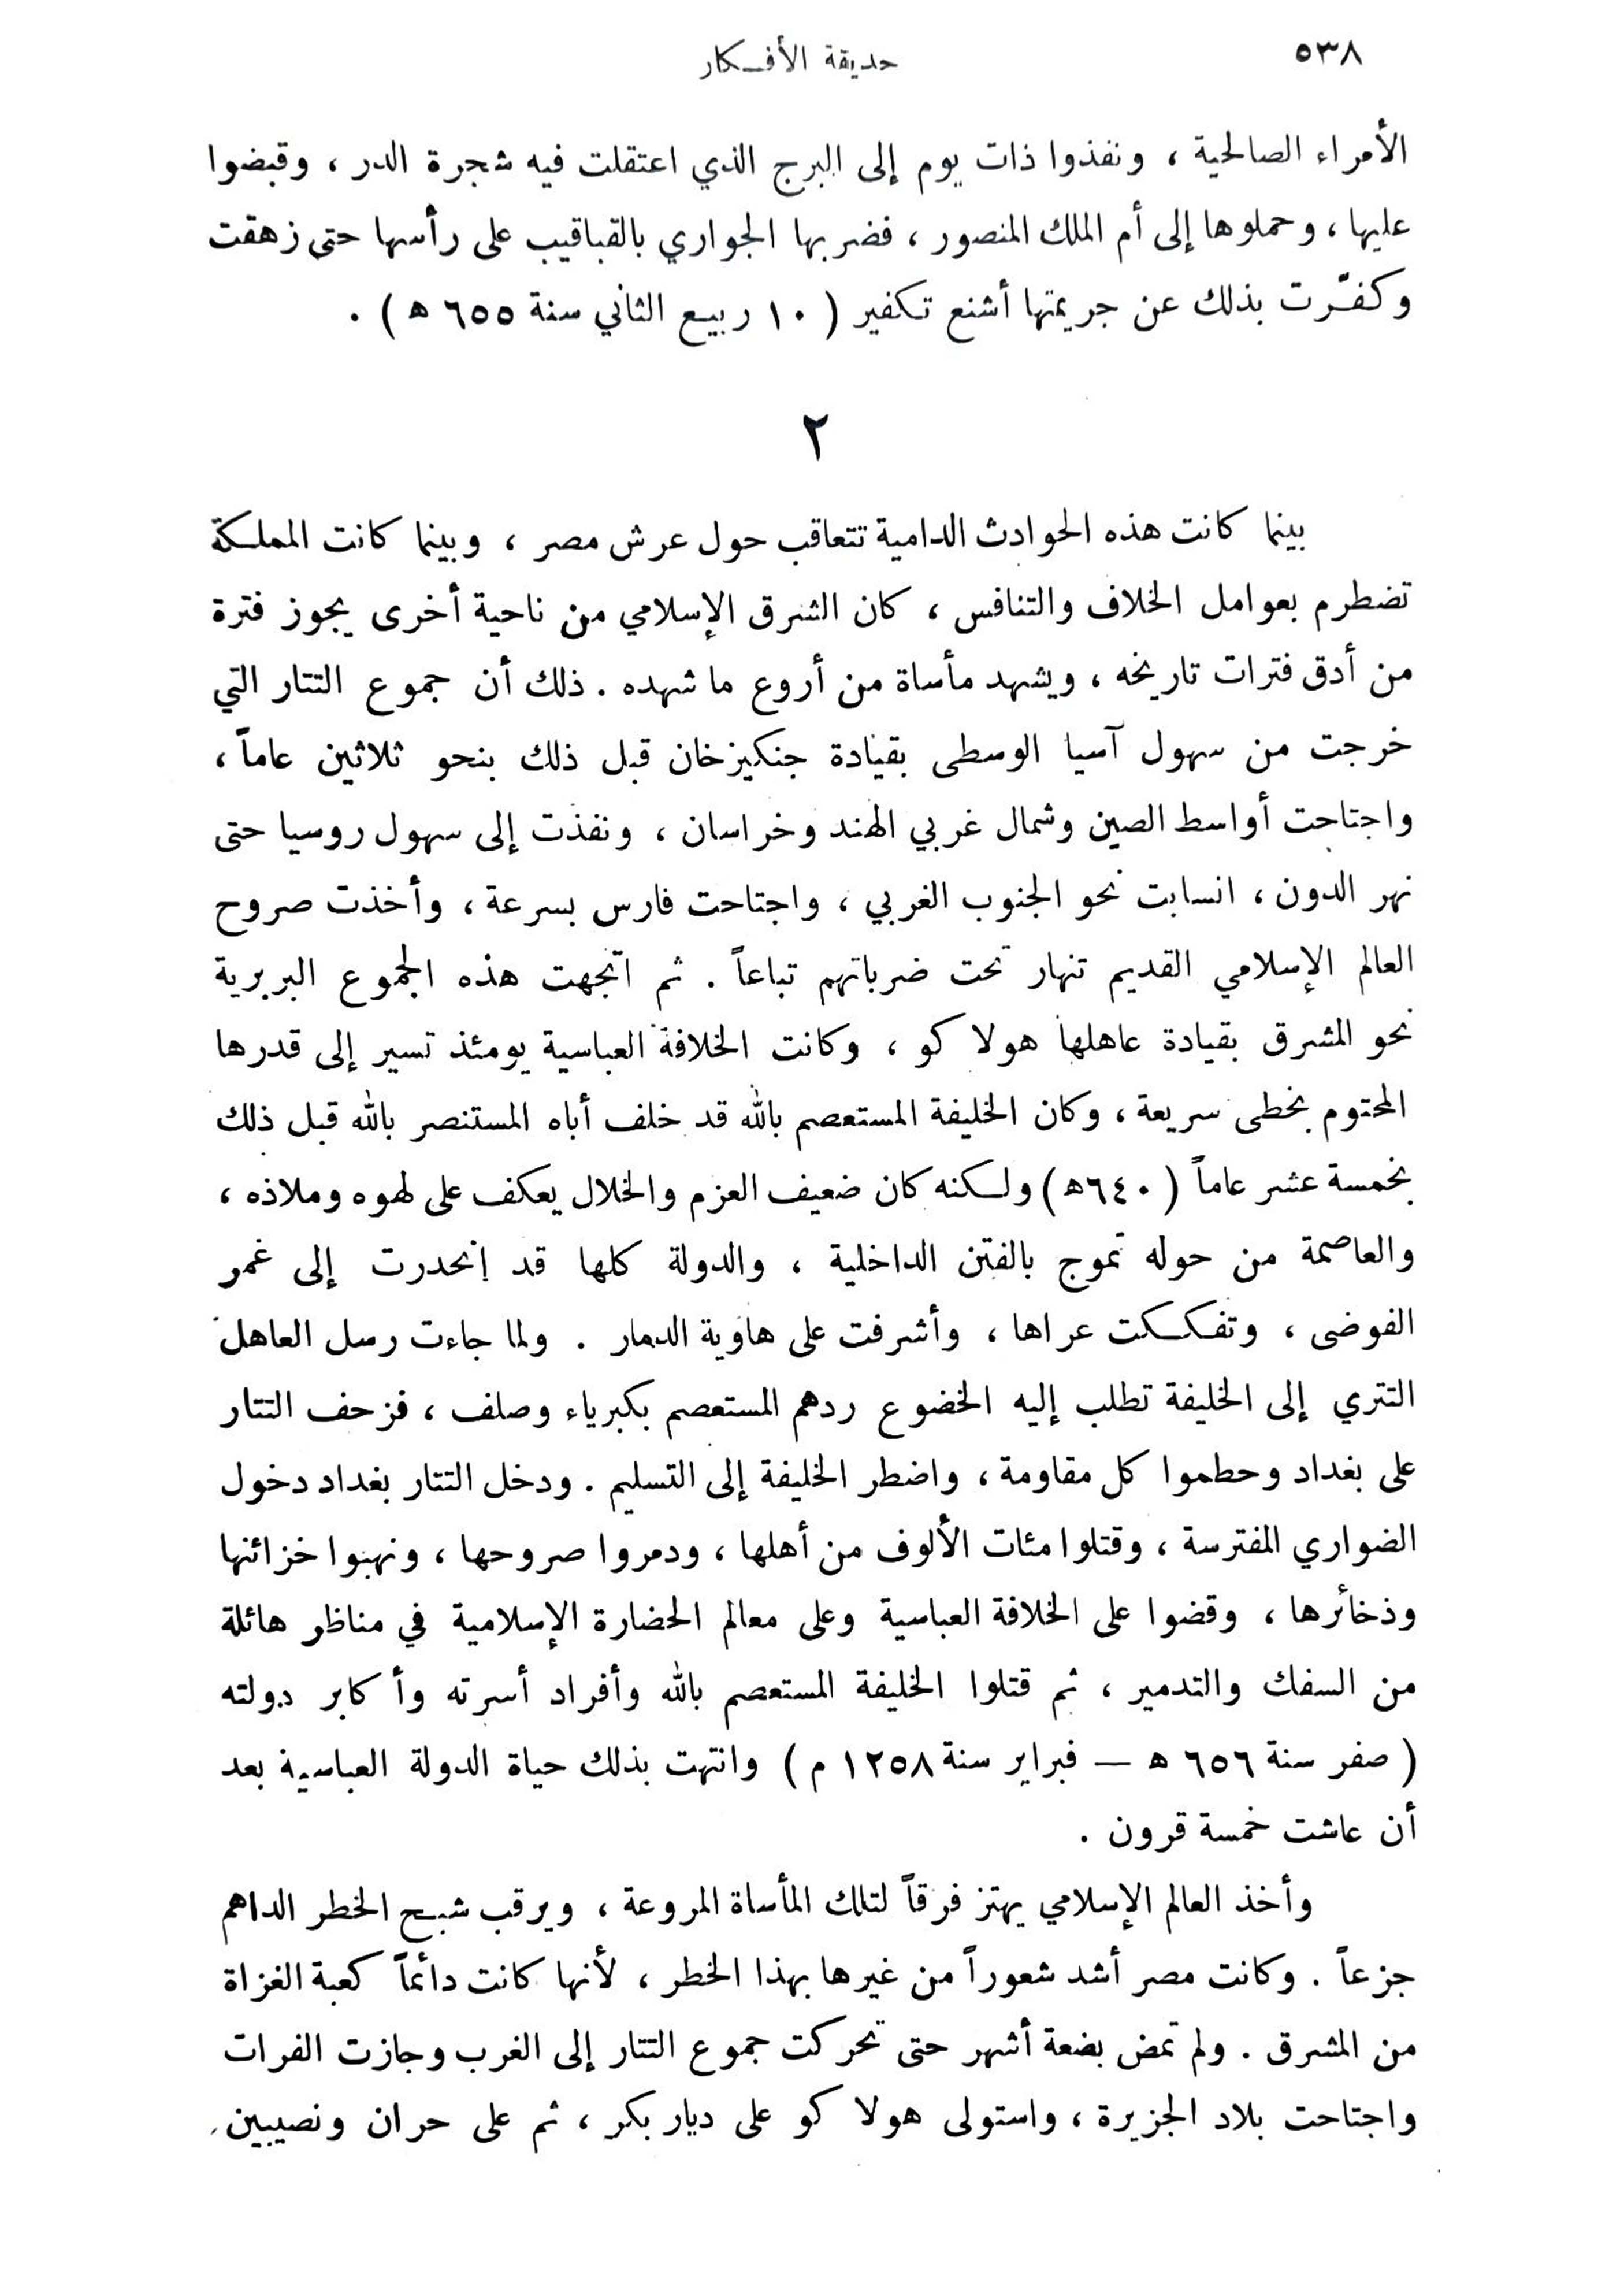 ٥٣٨
حديقة الأفكار
الأمراء الصالحية ، ونفذوا ذات يوم إلى البرج الذي اعتقلت فيه شجرة الدر ، وقبضوا
عليها ، وحملوها إلى أم الملك المنصور ، فضربها الجواري بالقباقيب على رأسها حتى زهقت
وكفّرت بذلك عن جريمتها أشنع تكفير ( ١٠ ربيع الثاني سنة ٦٥٥ ه ) .
٢
بينما كانت هذه الحوادث الدامية تتعاقب حول عرش مصر ، وبينما كانت المملكة
تضطرم بعوامل الخلاف والتنافس ، كان الشرق الإسلامي من ناحية أخرى يجوز فترة
من أدق فترات تاريخه ، ويشهد مأساة من أروع ما شهده . ذلك أن جموع التتار التي
خرجت من سهول آسيا الوسطى بقيادة جنكيزخان قبل ذلك بنحو ثلاثين عاماً ،
واجتاحت أواسط الصين وشمال غربي الهند وخراسان ، ونفذت إلى سهول روسيا حتى
نهر الدون ، انسابت نحو الجنوب الغربي ، واجتاحت فارس بسرعة ، وأخذت صروح
العالم الإسلامي القديم تنهار تحت ضرباتهم تباعاً . ثم اتجهت هذه الجموع البربرية
نحو المشرق بقيادة عاهلها هولاكو ، وكانت الخلافة العباسية يومئذ تسير إلى قدرها
المحتوم بخطى سريعة ، وكان الخليفة المستعصم بالله قد خلف أباه المستنصر بالله قبل ذلك
بخمسة عشر عاماً ( ٦٤٠ه ) ولكنه كان ضعيف العزم والخلال يعكف على لهوه وملاذه ،
والعاصمة من حوله تموج بالفتن الداخلية ، والدولة كلها قد انحدرت إلى غمر
الفوضى ، وتفككت عراها ، وأشرفت على هاوية الدمار . ولما جاءت رسل العاهل
التتري إلى الخليفة تطلب إليه الخضوع ردهم المستعصم بكبرياء وصلف ، فزحف التتار
على بغداد وحطموا كل مقاومة ، واضطر الخليفة إلى التسليم . ودخل التتار بغداد دخول
الضواري المفترسة ، وقتلوا مئات الألوف من أهلها ، ودمروا صروحها ، ونهبوا خزائنها
وذخائرها ، وقضوا على الخلافة العباسية وعلى معالم الحضارة الإسلامية في مناظر هائلة
من السفك والتدمير ، ثم قتلوا الخليفة المستعصم بالله وأفراد أسرته وأكابر دولته
( صفر سنة ٦٥٦ ه — فبراير سنة ١٢٥٨ م ) وانتهت بذلك حياة الدولة العباسية بعد
أن عاشت خمسة قرون .
وأخذ العالم الإسلامي يهتز فرقاً لتلك المأساة المروعة ، ويرقب شبح الخطر الداهم
جزعاً . وكانت مصر أشد شعوراً من غيرها بهذا الخطر ، لأنها كانت دائماً كعبة الغزاة
من المشرق . ولم تمض بضعة أشهر حتى تحركت جموع التتار إلى الغرب وجازت الفرات
واجتاحت بلاد الجزيرة ، واستولى هولاكو على ديار بكر ، ثم على حران ونصيبين